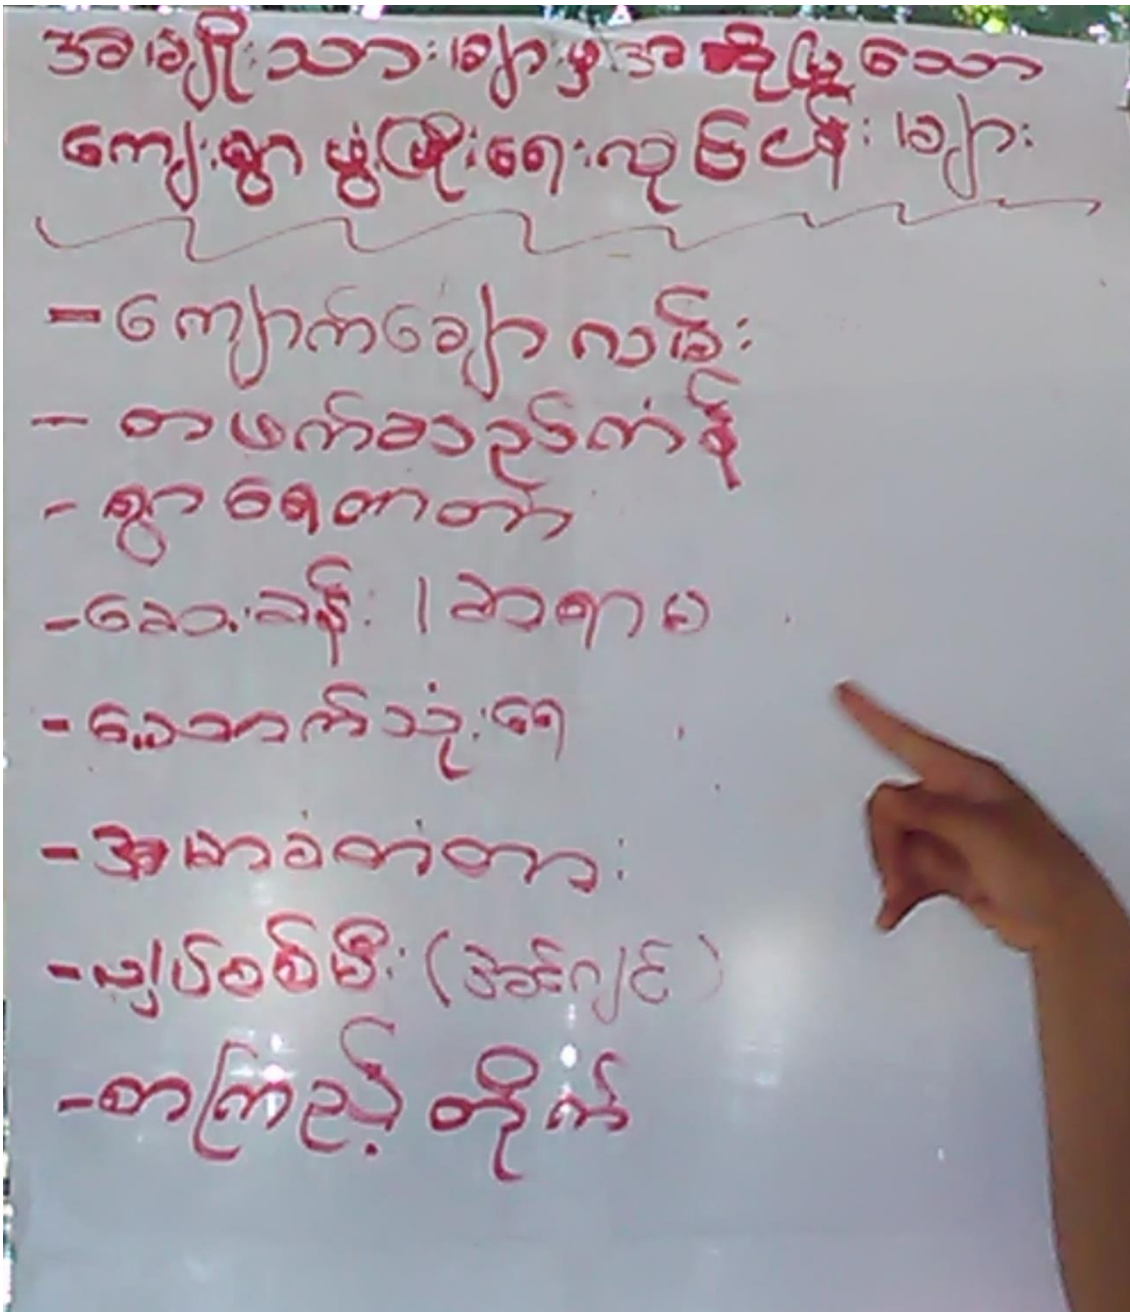 အမျိုးသားများမှအဆိုပြုသော
ကျေးရွာဖွံ့ဖြိုးရေးလုပ်ငန်းများ
- ကျောက်ချောလမ်း
- စာဖတ်ဆောင်
- ရွာရေတာတာ
- ဆေးခန်း / ဆရာမ
- သောက်သုံးရေ
- အမာခံတံတား
- လျှပ်စစ်မီး (အင်ဂျင်)
- စာကြည့်တိုက်